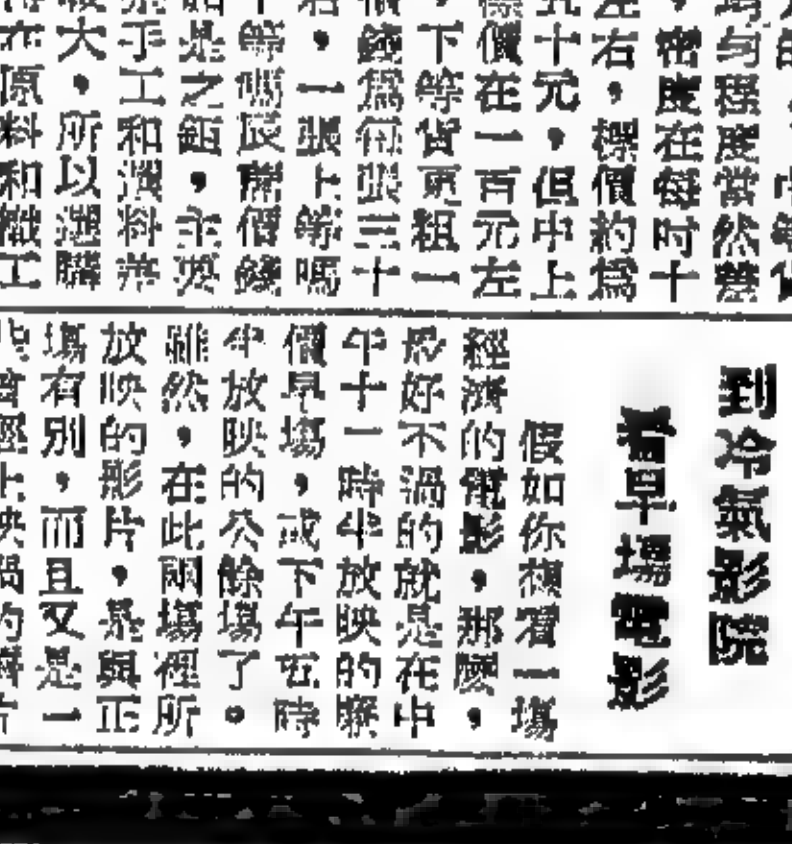 均勻程度當然
，密度在每吋十
左右，標價約為
五十元，但中上
標價在一百元左
，下等貨更粗一
價錢為每張三十
右，一張上等嗎
等嗎辰蓆價錢
如是之鉅，主要
手工和料
大，所以選購
在原料和織工
到冷氣影院
看早場電影
假如你想看一場
經濟的電影，那麼，
最好不過的就是在中
午十一時半放映的廉
價早場，或下午五時
半放映的公餘場了。
雖然，在此兩場裡所
放映的影片，是與正
場有別，而且又是一
些曾經上映過的舊片